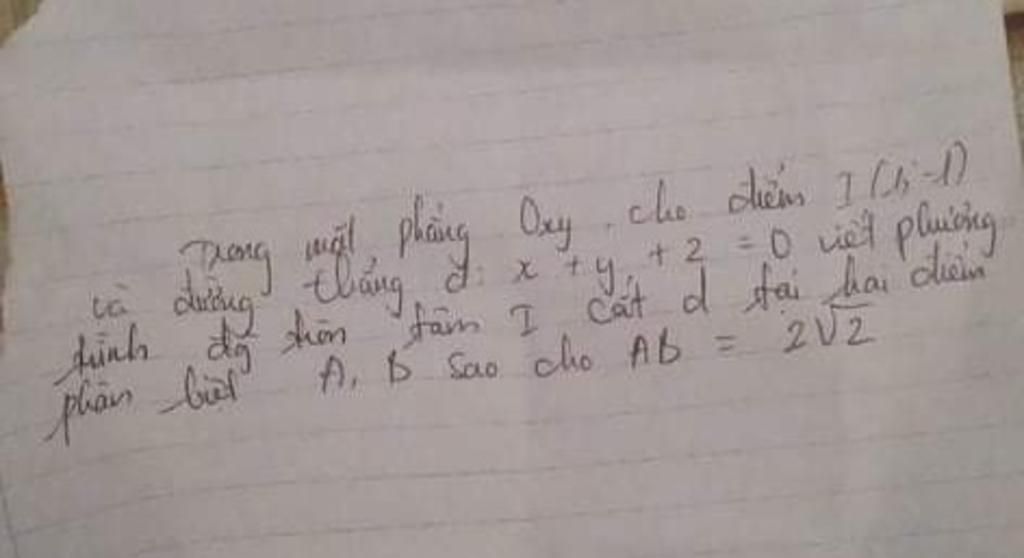 Trong mặt phẳng Oxy. cho điểm I(1;-1)
và đường thẳng d: x + y + 2 = 0 viết phương
trình đg tròn tâm I cắt d tại hai điểm
phân biệt A, B sao cho AB = 2√2